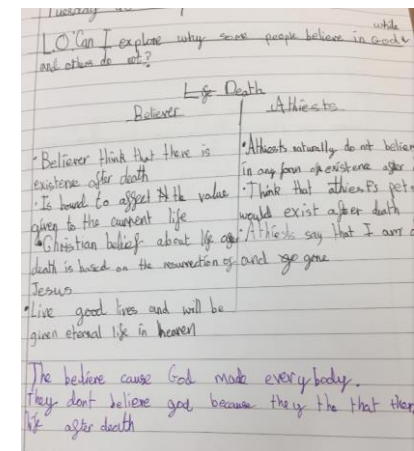 Tuesday
while
L.O: Can I explore why some people believe in God
and others do not?
Death
Believer
Athiests
• Believer think that there is
existene after death
• Is bound to affect the value
given to the current life
• Christian belief about life after
death is based on the resurrection of
Jesus
• Live good lives and will be
given eternal life in heaven
• Athiests naturally do not believe
in any form of existene after
• Think that athiests pet
would exist after death
• Athiests say that I am
and gone
The beliere cause God made everybody.
They dont beliere god because they the that ther
life after death